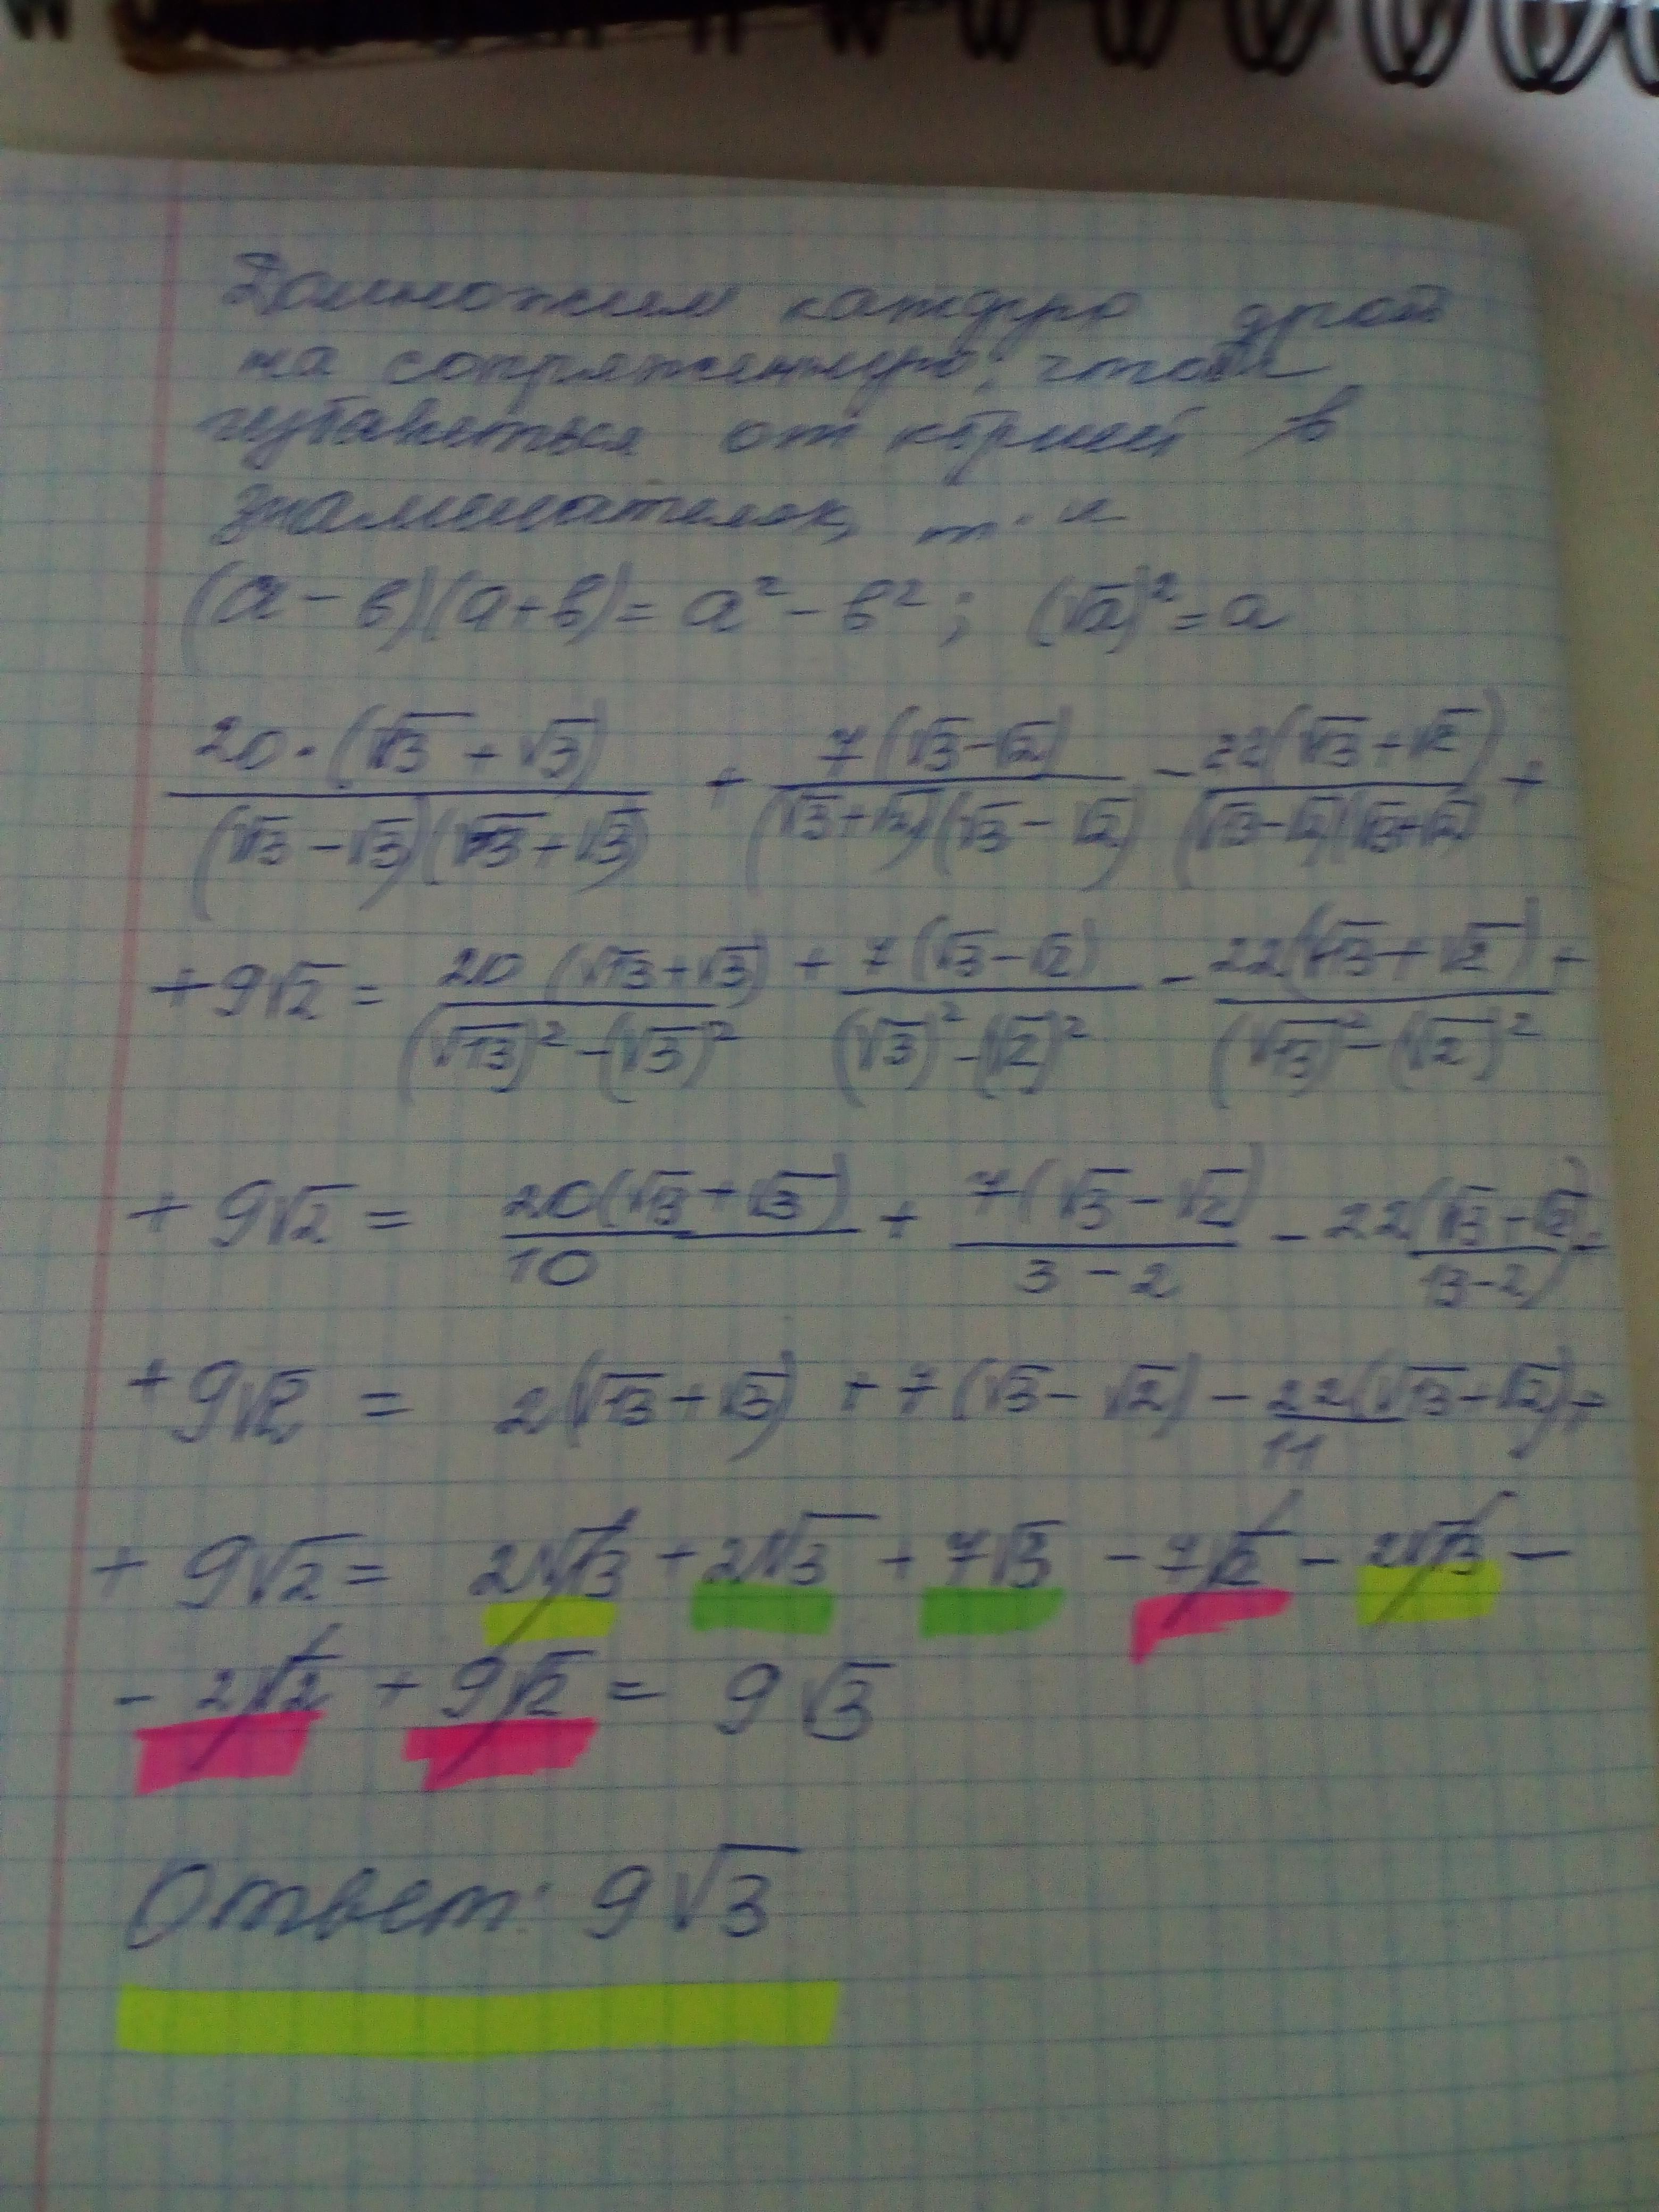 Домножим каждую дробь
на сопряженную, чтобы
избавиться от корней в
знаменателях, т. к
(a - b)(a + b) = a² - b² ; (√a)² = a
20·(√13 + √3)/((√13 - √3)(√13 + √3)) + 7(√3 - √2)/((√3 + √2)(√3 - √2)) - 22(√13 + √2)/((√13 - √2)(√13 + √2)) +
+ 9√2 = 20(√13 + √3)/((√13)² - (√3)²) + 7(√3 - √2)/((√3)² - (√2)²) - 22(√13 + √2)/((√13)² - (√2)²) +
+ 9√2 = 20(√13 + √3)/10 + 7(√3 - √2)/(3 - 2) - 22(√13 + √2)/(13 - 2) +
+ 9√2 = 2(√13 + √3) + 7(√3 - √2) - 22(√13 + √2)/11 +
+ 9√2 = 2√13 + 2√3 + 7√3 - 7√2 - 2√13 -
- 2√2 + 9√2 = 9√3
Ответ: 9√3